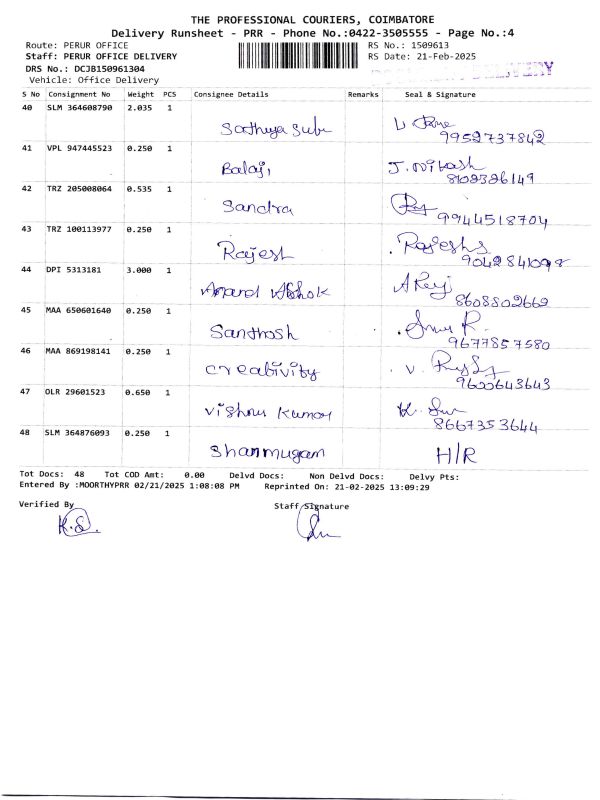 THE PROFESSIONAL COURIERS, COIMBATORE
Delivery Runsheet - PRR - Phone No.:0422-3505555 - Page No.:4
Route: PERUR OFFICE RS No.: 1509613
Staff: PERUR OFFICE DELIVERY RS Date: 21-Feb-2025
DRS No.: DCJB150961304 DELIVERY
Vehicle: Office Delivery
S No Consignment No Weight PCS Consignee Details Remarks Seal & Signature
40 SLM 364608790 2.035 1
Sathya Sube 9952737842
41 VPL 947445523 0.250 1
Balaji 8102326149
42 TRZ 205008064 0.535 1
Sandra 9944518704
43 TRZ 100113977 0.250 1
Rajesh Rajesh S 9042841098
44 DPI 5313181 3.000 1
Anand Ashok 8608802669
45 MAA 650601640 0.250 1
Santhosh 9677857580
46 MAA 869198141 0.250 1
creativity 9600643643
47 OLR 29601523 0.650 1
Vishnu Kumar 8667353644
48 SLM 364876093 0.250 1
Shanmugam H/R
Tot Docs: 48 Tot COD Amt: 0.00 Delvd Docs: Non Delvd Docs: Delvy Pts:
Entered By :MOORTHYPRR 02/21/2025 1:08:08 PM Reprinted On: 21-02-2025 13:09:29
Verified By Staff Signature
K.S.